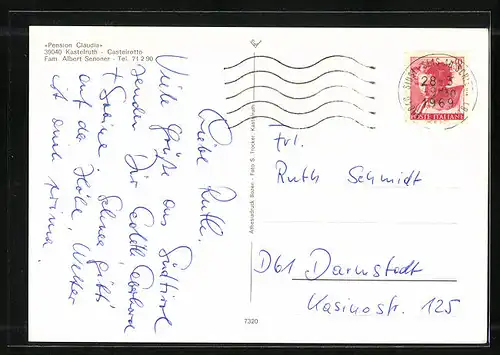 «Pension Claudia»
39040 Kastelruth - Castelrotto
Fam. Albert Senoner - Tel. 71 2 90
Liebe Ruth,
Viele Grüße aus Südtirol
senden Dir
+ Sabine. Schnee gibt's
auf der Höhe, Wetter
ist auch prima.
Athesiadruck Bozen Foto S. Trocker, Kastelruth
7320
28-3
1969
POSTE ITALIANE
Frl.
Ruth Schmidt
D61 Darmstadt
Kasinostr. 125